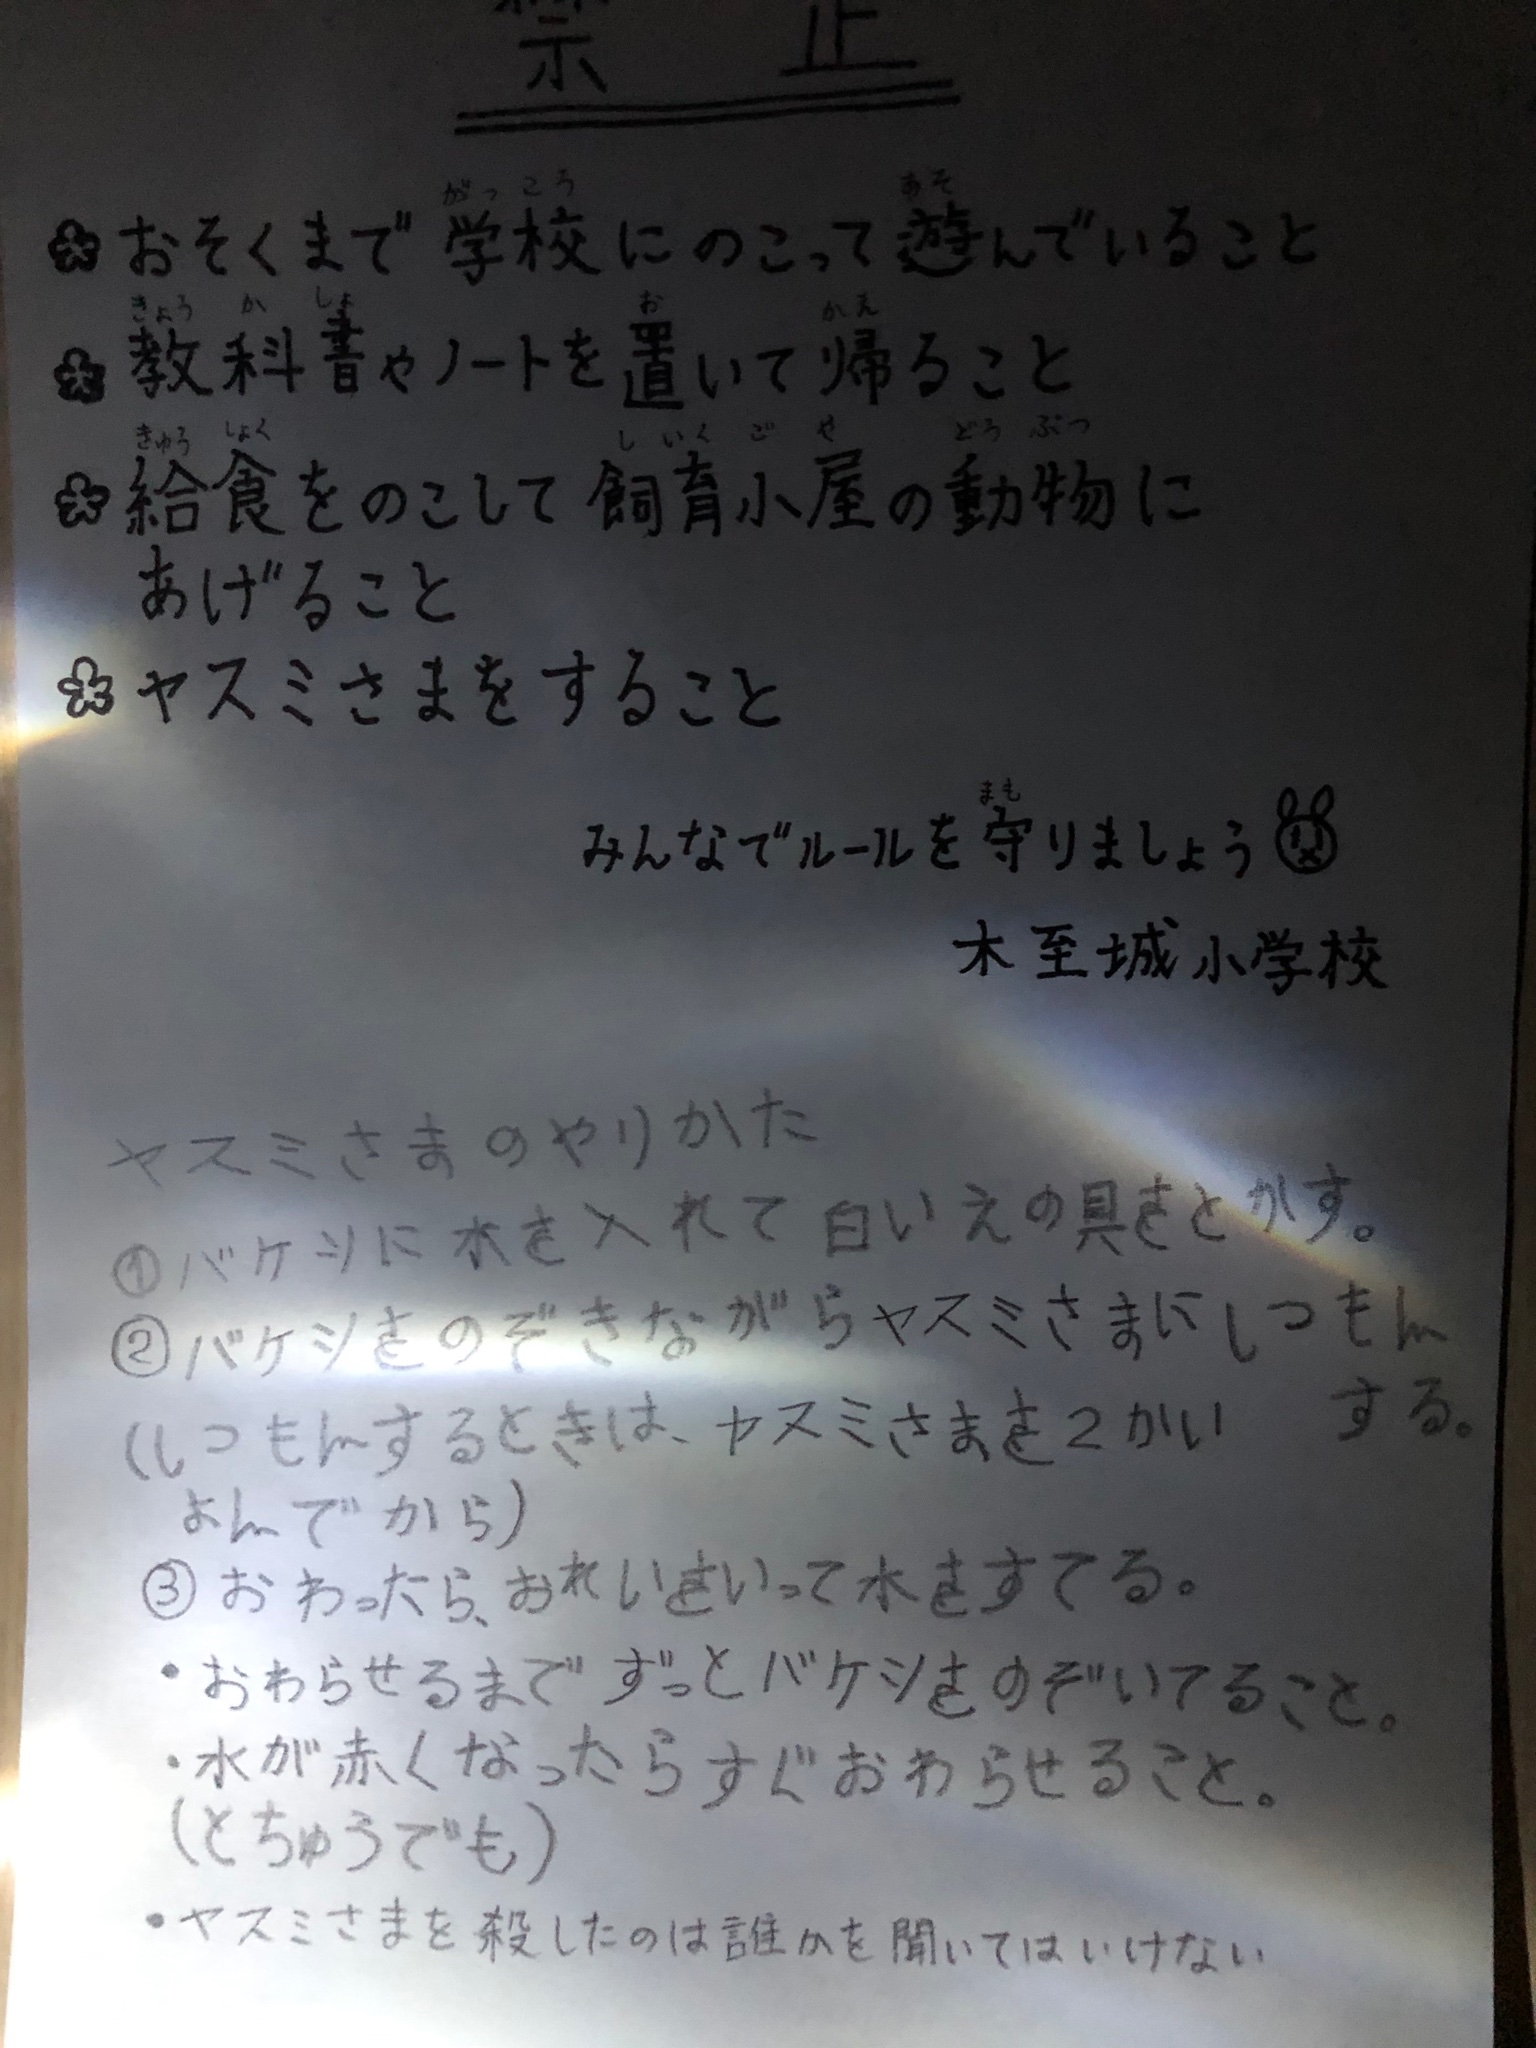 禁止
おそくまで学校にのこって遊んでいること
教科書やノートを置いて帰ること
給食をのこして飼育小屋の動物に
あげること
ヤスミさまをすること
みんなでルールを守りましょう
木至城小学校
ヤスミさまのやりかた
①バケツに水を入れて白いえの具をとかす。
②バケツをのぞきながらヤスミさまにしつもん
する。
(しつもんするときは、ヤスミさまを2かい
よんでから)
③おわったら、おれいをいって水をすてる。
・おわらせるまでずっとバケツをのぞいてること。
・水が赤くなったらすぐおわらせること。
(とちゅうでも)
・ヤスミさまを殺したのは誰かを聞いてはいけない